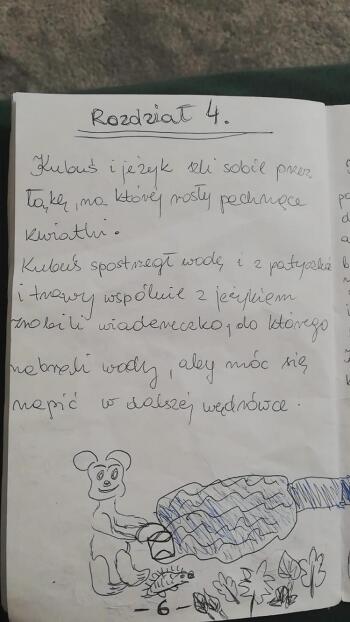 Rozdział 4.
Kubuś i jeżyk szli sobie przez
łąkę, na której rosły pachnące
kwiatki.
Kubuś spostrzegł wodę i z patyczków
i trawy wspólnie z jeżykiem
zrobili wiadereczko, do którego
nabrali wody, aby móc się
napić w dalszej wędrówce.
- 6 -